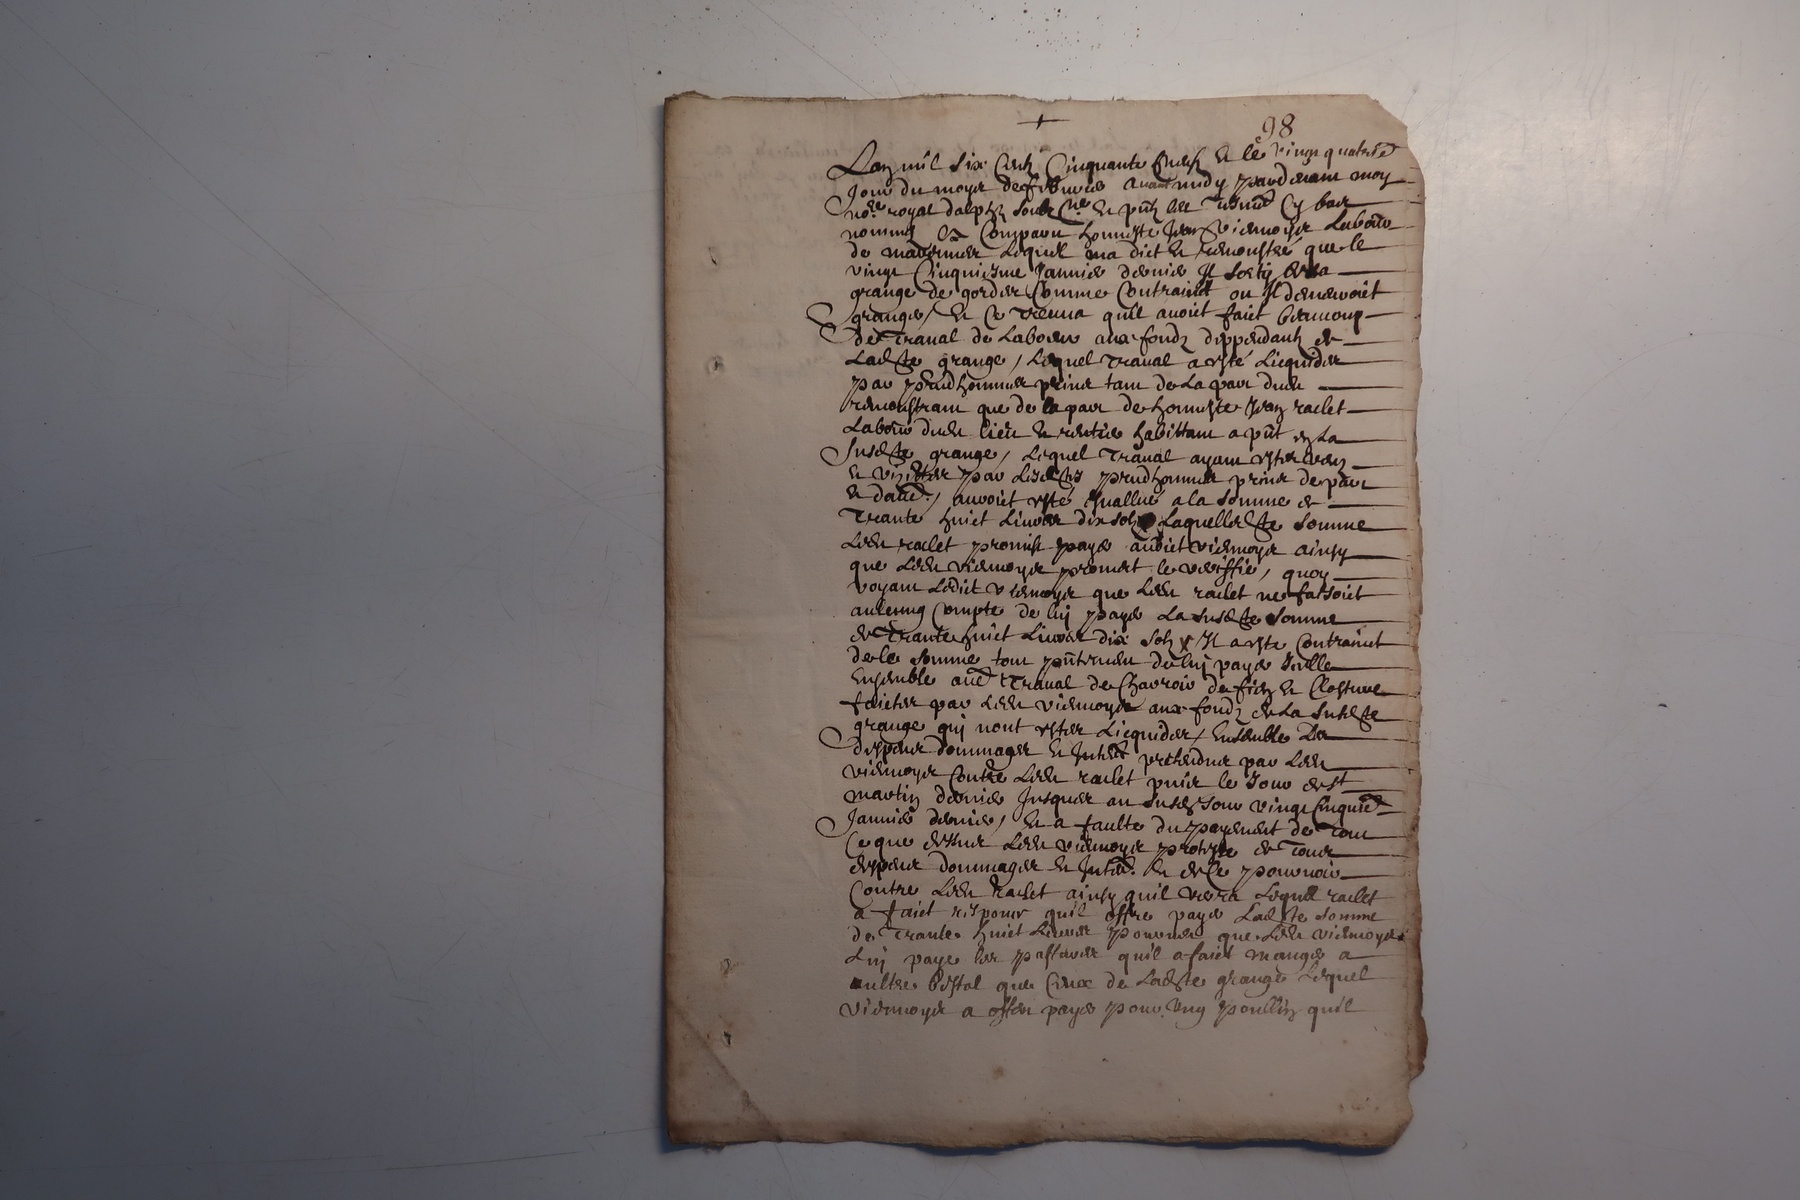 98
Lan mil six centz cinquante et le vingt quatrie
Jour du moys de febvrier avant midy pardevant moy
no.re royal dalphal soubz.ne et pnt les tesmo cy bas
nommes est comparu honneste Jean Viemoyer Labour
de lequel ma dict et remonstré que le
vingt cinquiesme Janvier dernier Il sortit de la
grange de comme contrainct ou Il demeuroit
granger, et ce quil avoict faict beaucoup
de Traval de Labeur aux fondz deppendantz de
Ladte grange, Lequel Traval a esté Licquidez
par prudhommes prins tant de La part dudt
remonstrant que de la part de honneste Jean raclet
Labour dudt lieu et rentier habittant a pnt en La
Susdte grange, Lequel Traval ayant este veu
et visitter par Lesdts prudhommes prins de part
et daud., auroict esté Evallué a la somme de
Trante huict Livres dix solz Laquelle dte somme
Ledt raclet promist payer audict viemoyer ainsy
que Ledt viemoyer promet le veriffier, quoy
voyant Ledict viemoyer que Ledt raclet ne faisoict
aulcung compte de luy payer La susdte somme
de Trante huict Livres dix solz Il a este contrainct
de le somme tout pntement de luy payer Icelle
Ensemble aud Traval de Charroir de fiens et Closture
faictes par Ledt viemoyer aux fondz de La susdte
grange quy nont estes Licquides, Ensemble Les
despens dommages et Interest pretendus par Ledt
viemoyer Contre Ledt raclet puis le Jour de st
martin dernier Jusques au susdt Jour vingt cinquie
Janvier dernier, et a faulte du payement de Tout
Ce que dessus Ledt viemoyer proteste de Tous
despens dommages et Inte. et de se pourvoir
Contre Ledt raclet ainsy quil verra Lequel raclet
a faict respons quil offre payer Ladte somme
de Trante huict Livres pourveu que Ledt viemoyer
Luy paye les pastures quil a faict manger a
aultre bestal que Ceux de Ladte grange Lequel
viemoyer a offert payer pour ung poullin quil